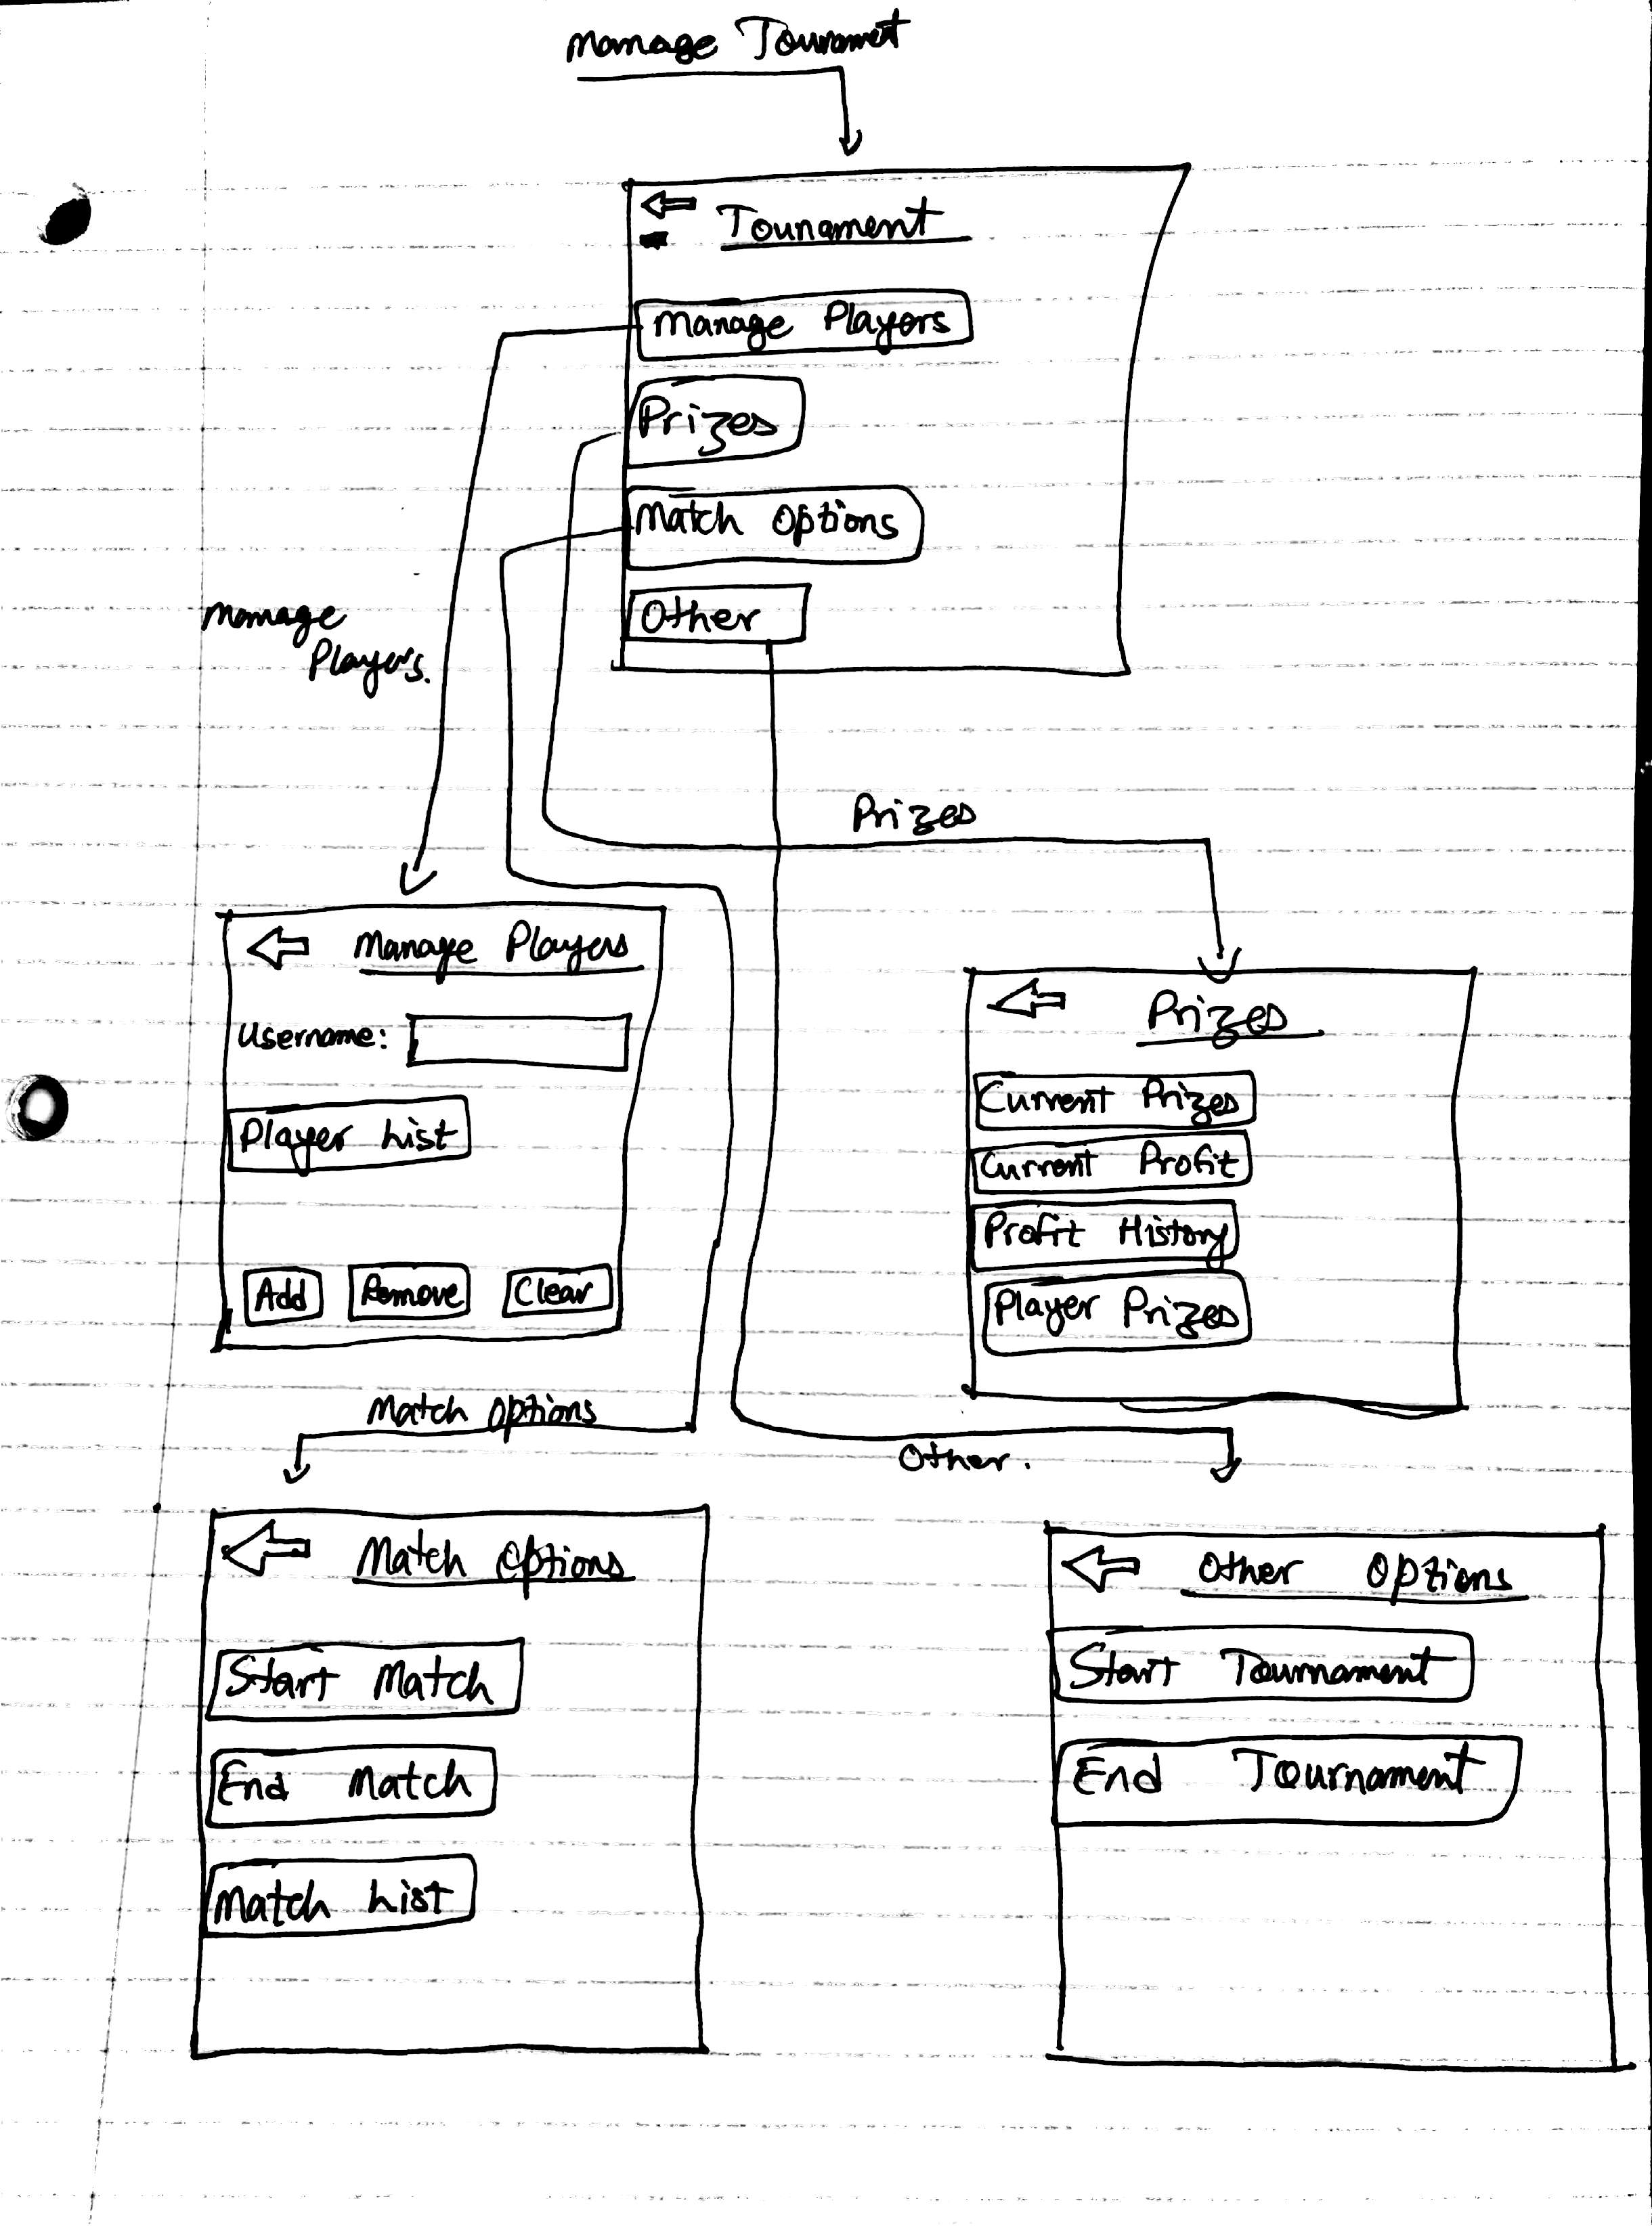 Manage Tournamet
Tounament
Manage Players
Prizes
Match Options
Other
Manage
Players.
Prizes
Manage Players
Username:
Player List
Add Remove Clear
Prizes
Current Prizes
Current Profit
Profit History
Player Prizes
Match Options
Other.
Match Options
Start Match
End Match
Match List
Other Options
Start Tournament
End Tournament